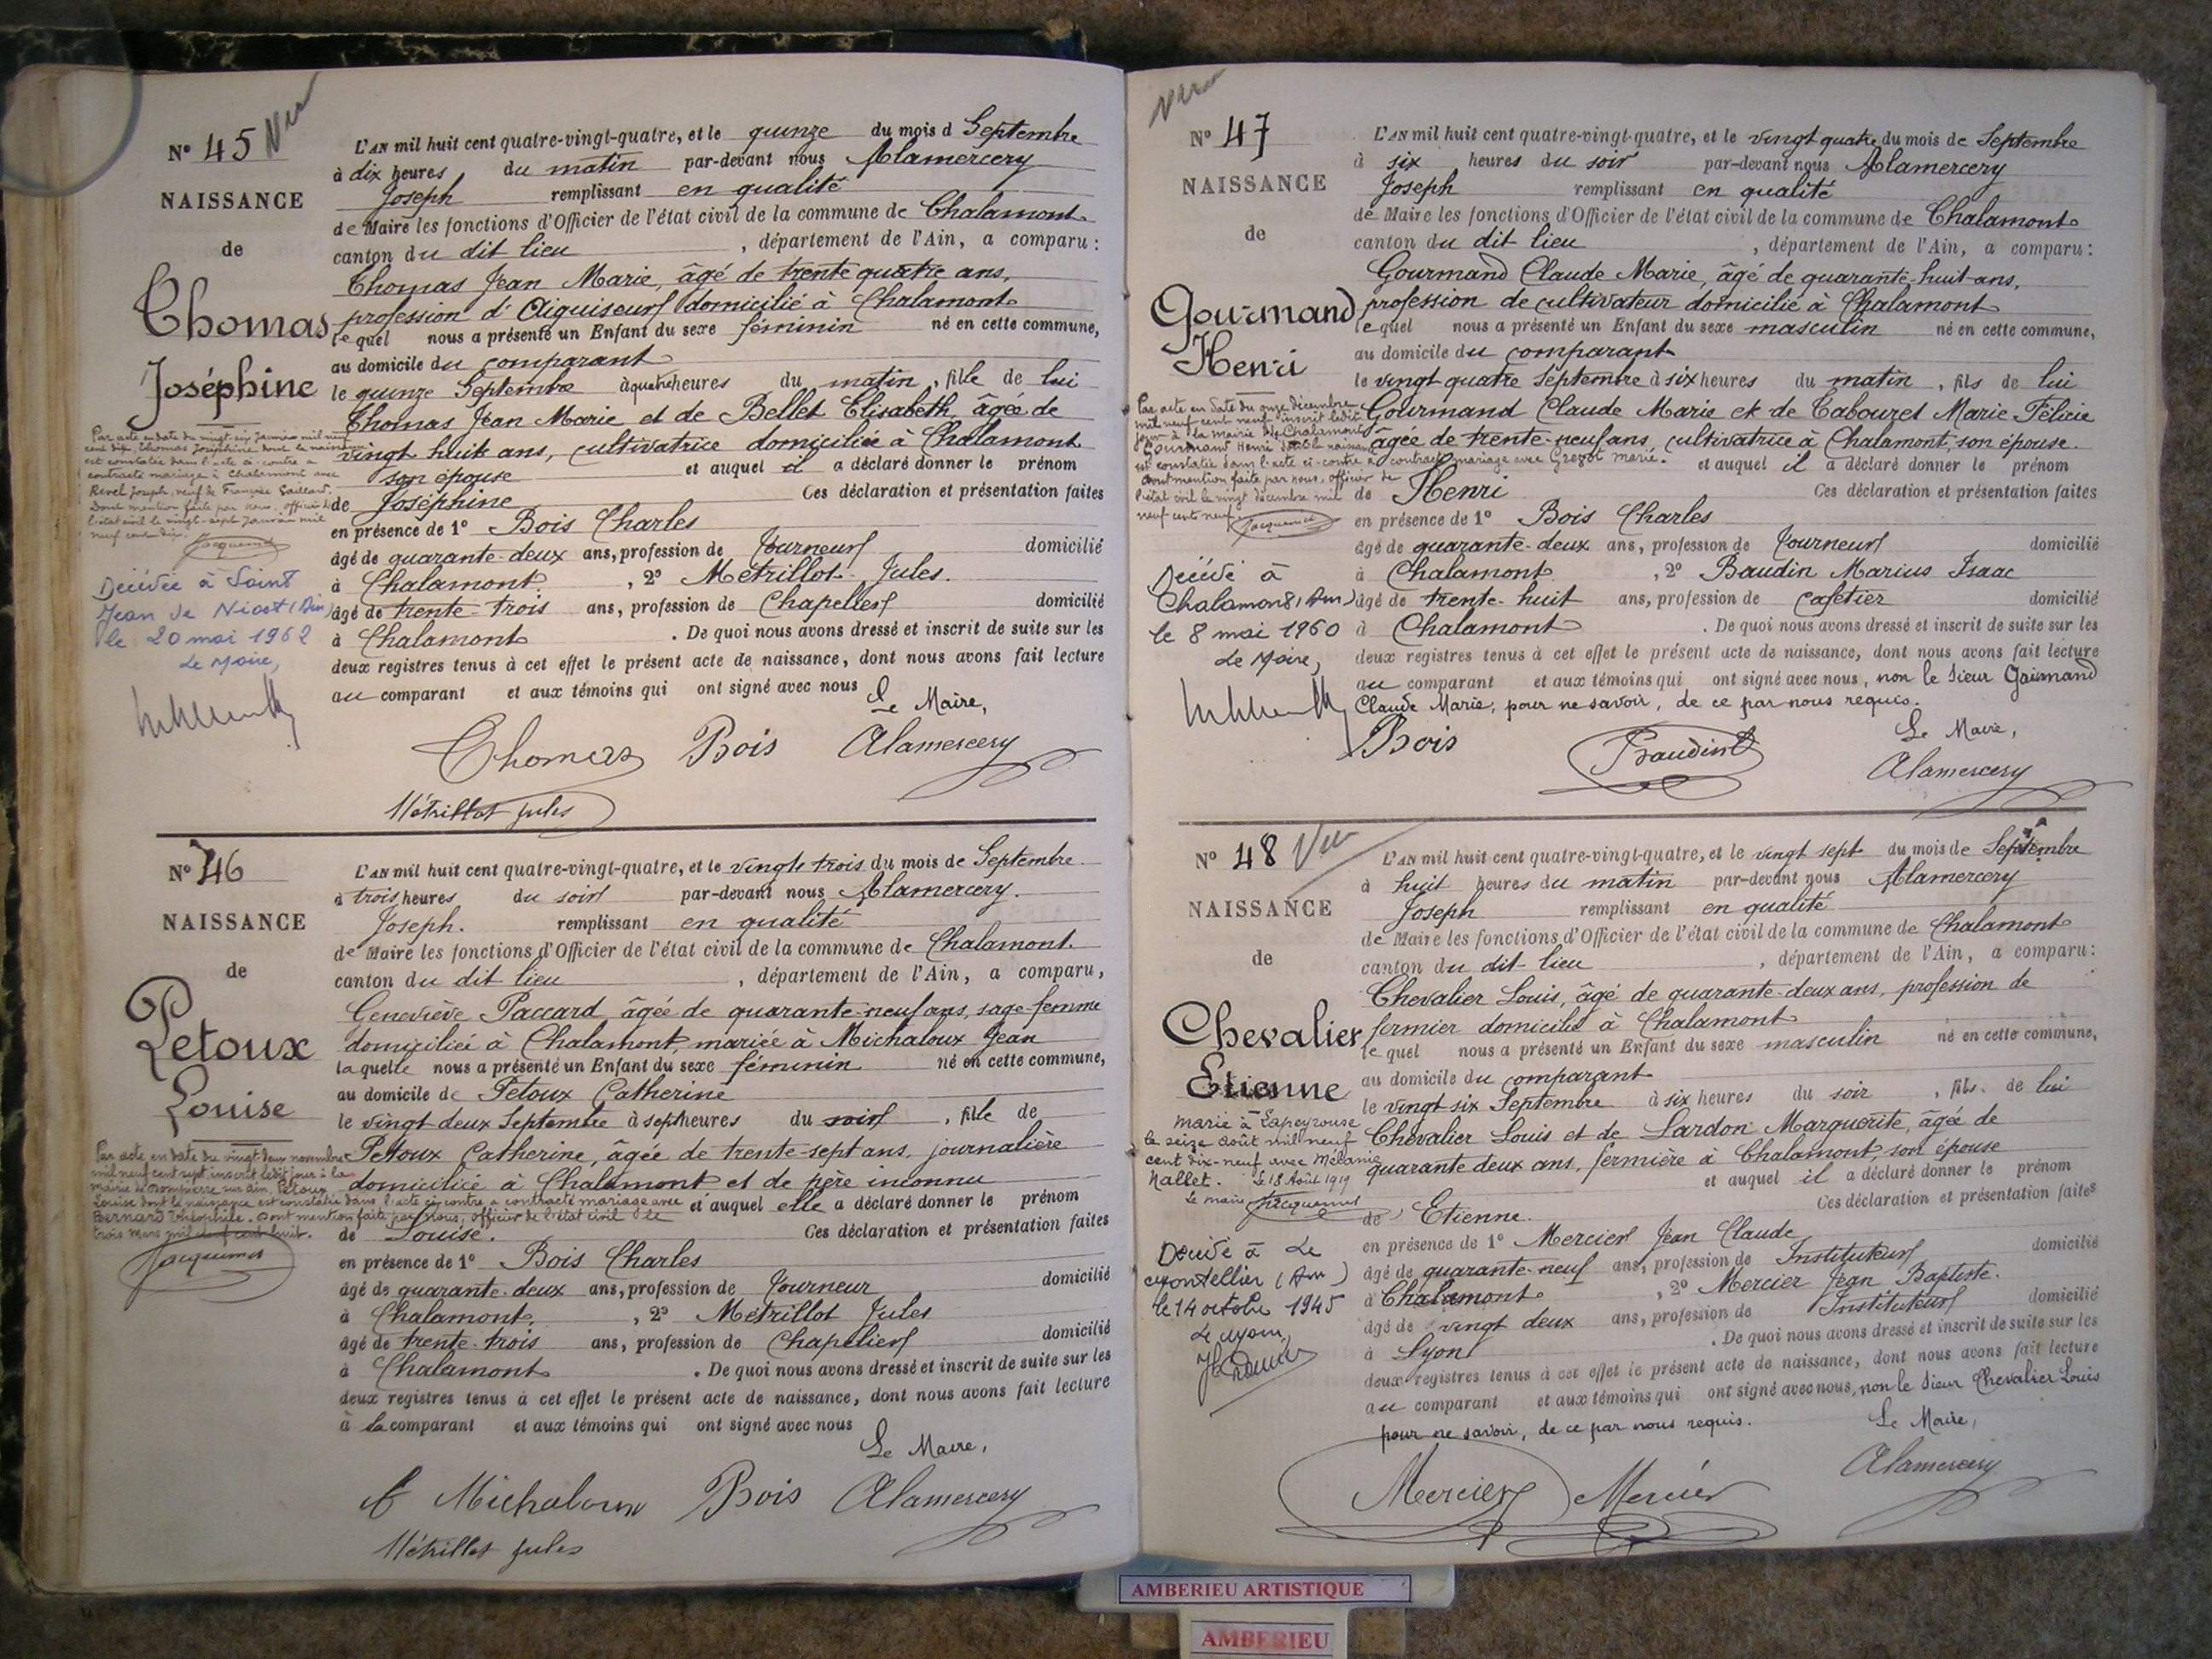 N° 45 Vu
NAISSANCE
de
Thomas
Joséphine
Par acte en date du vingt-six Janvier mil neuf
cent dix, Thomas Joséphine dont la naissance
est constatée dans l'acte ci-contre a
contracté mariage à Chalamont avec
Revel Joseph, veuf de Françoise Gaillard.
Dont mention faite par nous, officier de
l'état civil le vingt-sept Janvier mil
neuf cent dix.
Jacquemet
Décédée à Saint
Jean de Niost (Ain)
le 20 mai 1962
Le Maire,
L'AN mil huit cent quatre-vingt-quatre, et le quinze du mois d Septembre
à dix heures du matin par-devant nous Alamercery
Joseph remplissant en qualité
de Maire les fonctions d'Officier de l'état civil de la commune de Chalamont
canton du dit lieu , département de l'Ain, a comparu :
Thomas Jean Marie, âgé de trente quatre ans,
profession d'Aiguiseur domicilié à Chalamont
lequel nous a présenté un Enfant du sexe féminin né en cette commune,
au domicile du comparant
le quinze Septembre à quatre heures du matin, fille de lui
Thomas Jean Marie et de Bellet Elisabeth, âgée de
vingt huit ans, cultivatrice domiciliée à Chalamont
son épouse et auquel il a déclaré donner le prénom
de Joséphine Ces déclaration et présentation faites
en présence de 1° Bois Charles
âgé de quarante-deux ans, profession de Tourneur domicilié
à Chalamont, 2° Métrillot Jules.
âgé de trente-trois ans, profession de Chapelier domicilié
à Chalamont . De quoi nous avons dressé et inscrit de suite sur les
deux registres tenus à cet effet le présent acte de naissance, dont nous avons fait lecture
au comparant et aux témoins qui ont signé avec nous
Le Maire,
Thomas Bois Alamercery
Métrillot Jules
N° 46
NAISSANCE
de
Petoux
Louise
Par acte en date du vingt deux novembre
mil neuf cent sept inscrit ledit jour à la
mairie de Dompierre sur Ain, Petoux
Louise dont la naissance est constatée dans l'acte ci-contre a contracté mariage avec
Bernard Théophile. Dont mention faite par nous, officier de l'état civil le
trois mars mil neuf cent huit.
Jacquemet
L'AN mil huit cent quatre-vingt-quatre, et le vingt trois du mois de Septembre
à trois heures du soir par-devant nous Alamercery.
Joseph. remplissant en qualité
de Maire les fonctions d'Officier de l'état civil de la commune de Chalamont.
canton du dit lieu , département de l'Ain, a comparu,
Geneviève Paccard âgée de quarante-neuf ans, sage-femme
domiciliée à Chalamont, mariée à Michaloux Jean
laquelle nous a présenté un Enfant du sexe féminin né en cette commune,
au domicile de Petoux Catherine
le vingt deux Septembre à sept heures du soir, fille de
Petoux Catherine, âgée de trente-sept ans, journalière
domiciliée à Chalamont et de père inconnu
et auquel elle a déclaré donner le prénom
de Louise. Ces déclaration et présentation faites
en présence de 1° Bois Charles
âgé de quarante-deux ans, profession de Tourneur domicilié
à Chalamont, 2° Métrillot Jules
âgé de trente-trois ans, profession de Chapelier domicilié
à Chalamont . De quoi nous avons dressé et inscrit de suite sur les
deux registres tenus à cet effet le présent acte de naissance, dont nous avons fait lecture
à la comparant et aux témoins qui ont signé avec nous
Le Maire,
Michaloux Bois Alamercery
Métrillot Jules
Vu
N° 47
NAISSANCE
de
Gourmand
Henri
Par acte en date du onze décembre
mil neuf cent neuf inscrit ledit
jour à la mairie de Chalamont
Gourmand Henri dont la naissance
est constatée dans l'acte ci-contre a contracté mariage avec Gregot Marie.
Dont mention faite par nous, officier de
l'état civil le vingt décembre mil
neuf cent neuf.
Jacquemet
Décédé à
Chalamont (Ain)
le 8 mai 1960
Le Maire,
L'AN mil huit cent quatre-vingt-quatre, et le vingt quatre du mois de Septembre
à six heures du soir par-devant nous Alamercery
Joseph remplissant en qualité
de Maire les fonctions d'Officier de l'état civil de la commune de Chalamont
canton du dit lieu , département de l'Ain, a comparu :
Gourmand Claude Marie, âgé de quarante-huit ans,
profession de cultivateur domicilié à Chalamont
lequel nous a présenté un Enfant du sexe masculin né en cette commune,
au domicile du comparant
le vingt quatre Septembre à six heures du matin, fils de lui
Gourmand Claude Marie et de Tabouret Marie Félicie
âgée de trente-neuf ans, cultivatrice à Chalamont, son épouse.
et auquel il a déclaré donner le prénom
de Henri Ces déclaration et présentation faites
en présence de 1° Bois Charles
âgé de quarante-deux ans, profession de Tourneur domicilié
à Chalamont , 2° Baudin Marius Isaac
âgé de trente-huit ans, profession de cafetier domicilié
à Chalamont . De quoi nous avons dressé et inscrit de suite sur les
deux registres tenus à cet effet le présent acte de naissance, dont nous avons fait lecture
au comparant et aux témoins qui ont signé avec nous, non le sieur Gourmand
Claude Marie, pour ne savoir, de ce par nous requis.
Le Maire,
Bois Baudin Alamercery
N° 48 Vu
NAISSANCE
de
Chevalier
Etienne
Marié à Lapeyrouse
le seize Août mil neuf
cent dix-neuf avec Mélanie
Nallet. Le 18 Août 1919
Le maire Jacquemet
Décédé à Le
Montellier (Ain)
le 14 octobre 1945
Le Maire,
L'AN mil huit cent quatre-vingt-quatre, et le vingt sept du mois de Septembre
à huit heures du matin par-devant nous Alamercery
Joseph remplissant en qualité
de Maire les fonctions d'Officier de l'état civil de la commune de Chalamont
canton du dit lieu , département de l'Ain, a comparu :
Chevalier Louis, âgé de quarante-deux ans, profession de
fermier domicilié à Chalamont
lequel nous a présenté un Enfant du sexe masculin né en cette commune,
au domicile du comparant
le vingt six Septembre à six heures du soir, fils de lui
Chevalier Louis et de Lardon Marguerite, âgée de
quarante deux ans, fermière à Chalamont, son épouse
et auquel il a déclaré donner le prénom
de Etienne. Ces déclaration et présentation faites
en présence de 1° Mercier Jean Claude
âgé de quarante-neuf ans, profession de Instituteur domicilié
à Chalamont , 2° Mercier Jean Baptiste.
âgé de vingt deux ans, profession de Instituteur domicilié
à Lyon . De quoi nous avons dressé et inscrit de suite sur les
deux registres tenus à cet effet le présent acte de naissance, dont nous avons fait lecture
au comparant et aux témoins qui ont signé avec nous, non le sieur Chevalier Louis
pour ne savoir, de ce par nous requis.
Le Maire,
Mercier Mercier Alamercery
AMBERIEU ARTISTIQUE
AMBERIEU